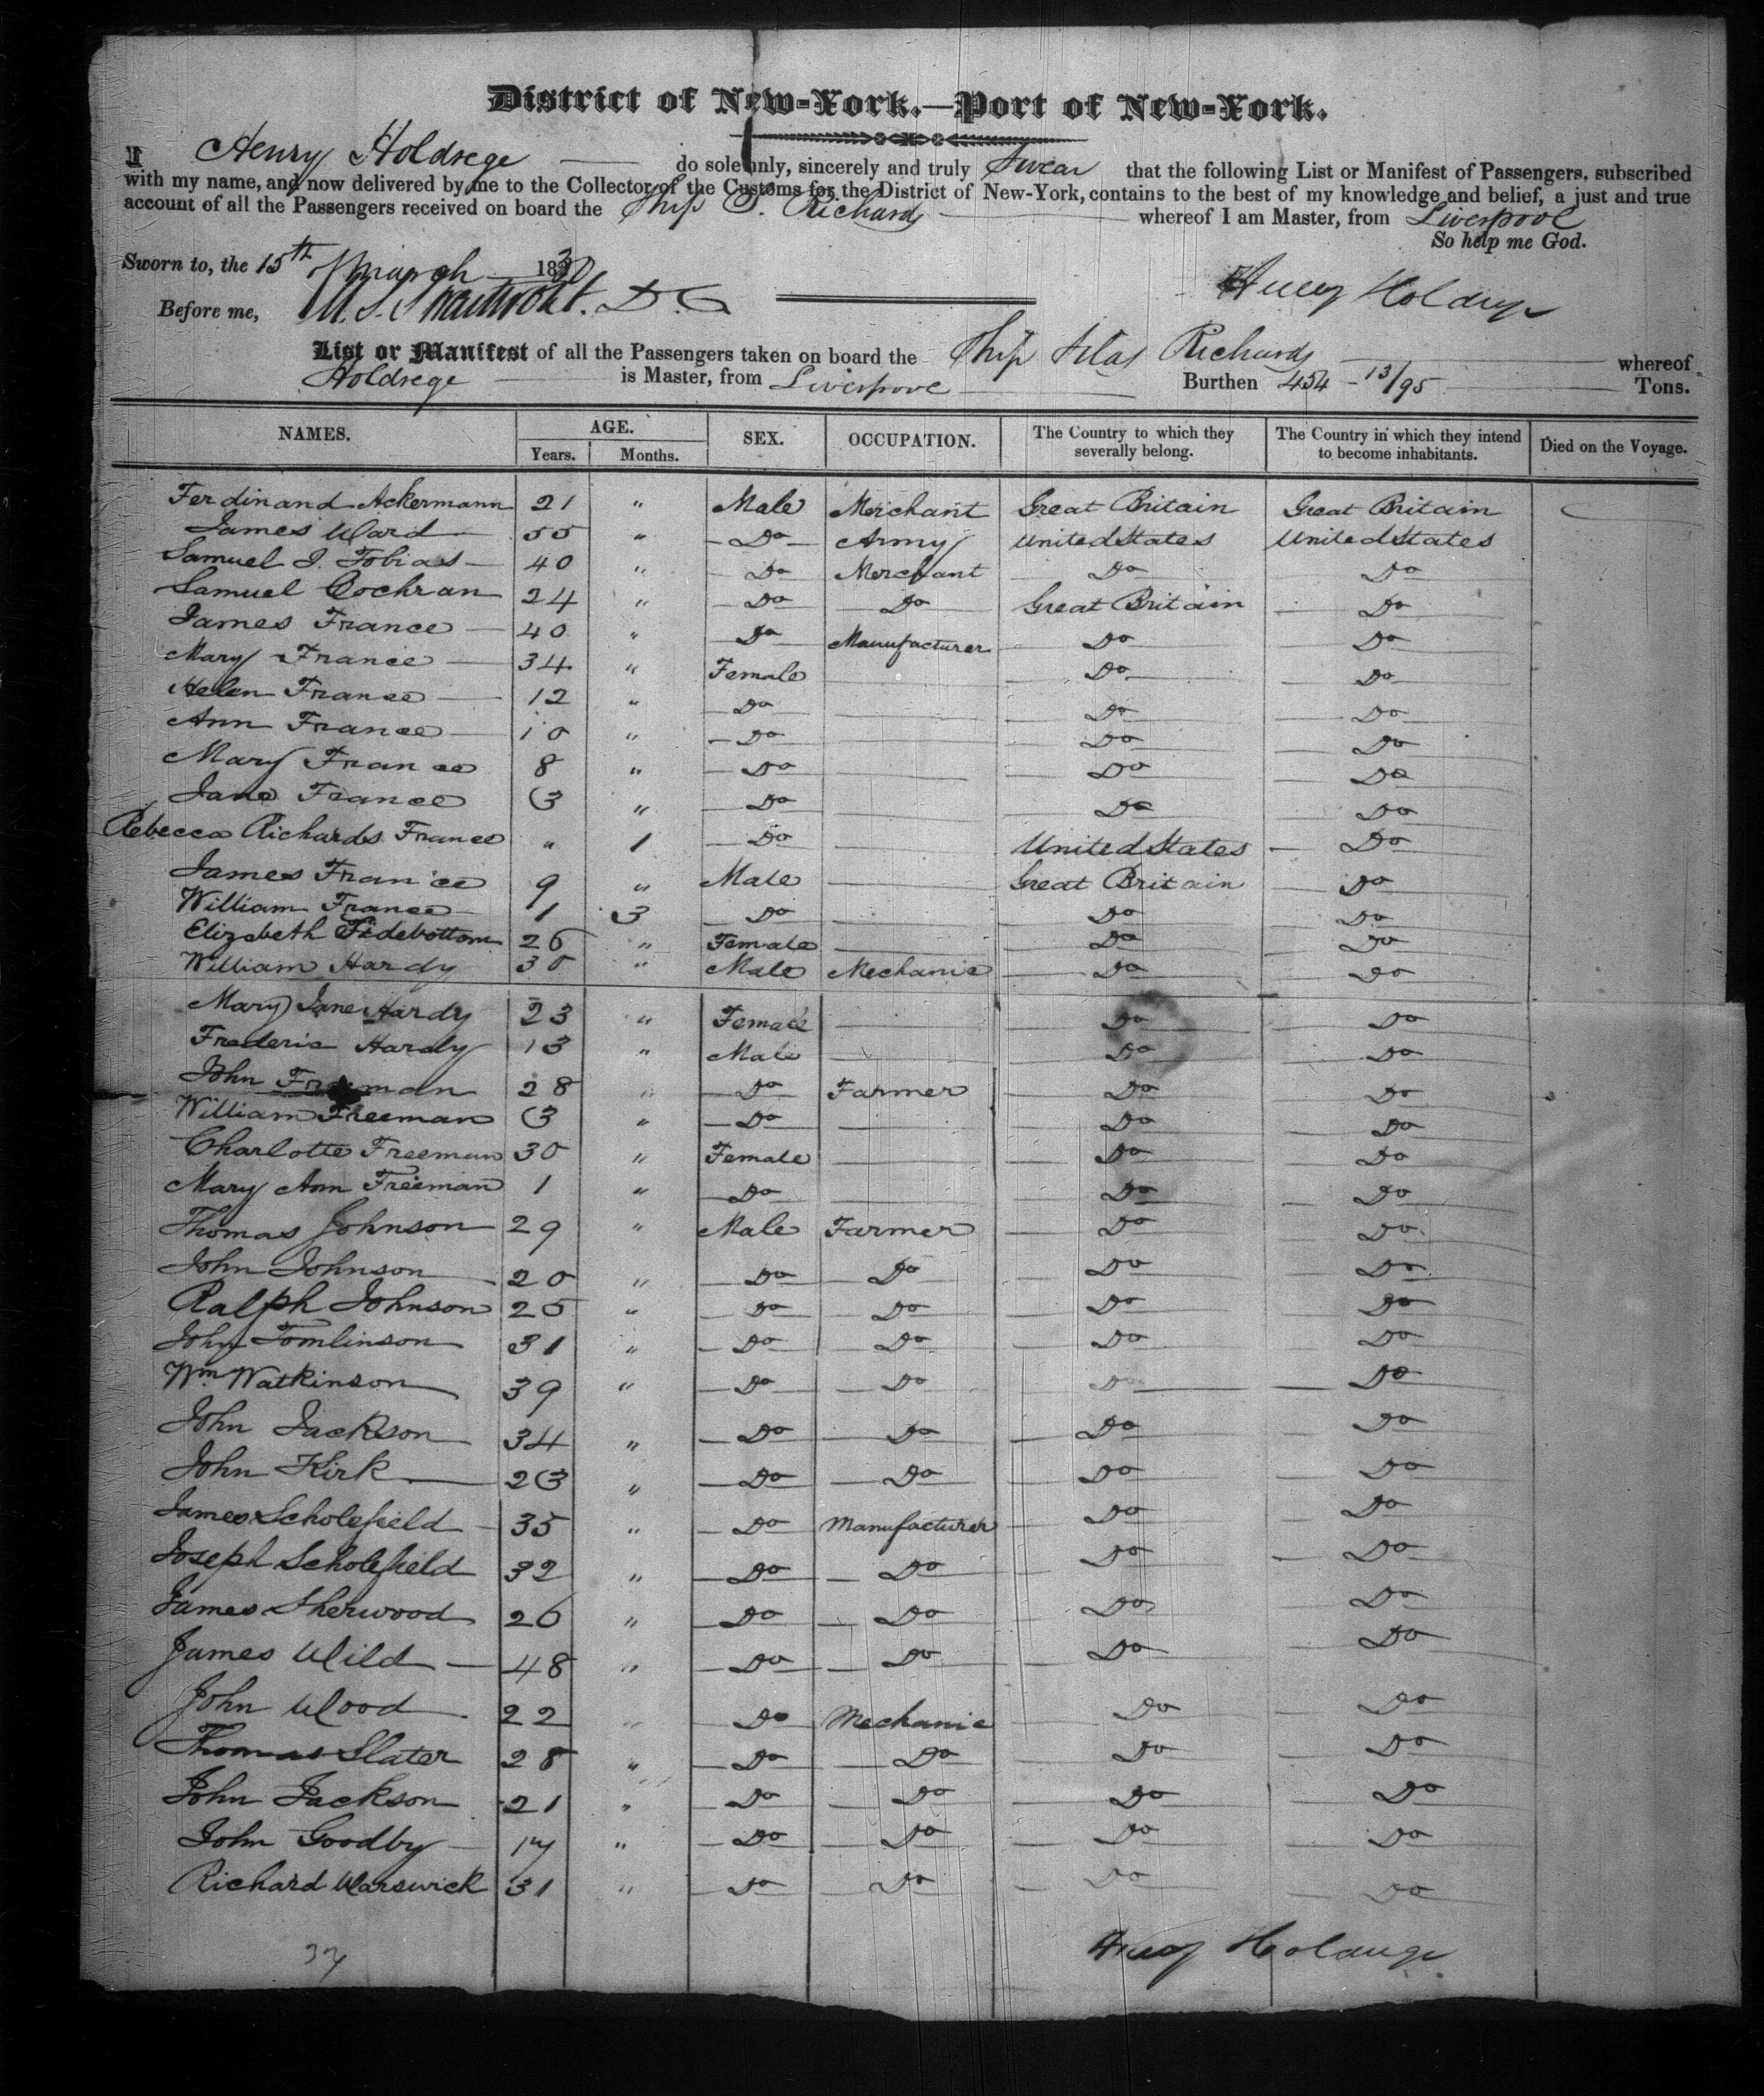 District of New-York.—Port of New-York.
I Henry Holdrege do solemnly, sincerely and truly Swear that the following List or Manifest of Passengers, subscribed
with my name, and now delivered by me to the Collector of the Customs for the District of New-York, contains to the best of my knowledge and belief, a just and true
account of all the Passengers received on board the Ship S. Richards whereof I am Master, from Liverpool
So help me God.
Sworn to, the 15th March 1830 Henry Holdrege
Before me, D.C.
List or Manifest of all the Passengers taken on board the Ship Silas Richards whereof
Holdrege is Master, from Liverpool Burthen 454-13/95 Tons.
NAMES. AGE. Years. Months. SEX. OCCUPATION. The Country to which they severally belong. The Country in which they intend to become inhabitants. Died on the Voyage.
Ferdinand Ackermann 21 " Male Merchant Great Britain Great Britain
James Ward 55 " Do Army United States United States
Samuel I. Tobias 40 " Do Merchant Do Do
Samuel Cochran 24 " Do Do Great Britain Do
James France 40 " Do Manufacturer Do Do
Mary France 34 " Female Do Do
Helen France 12 " Do Do Do
Ann France 10 " Do Do Do
Mary France 8 " Do Do Do
Jane France 3 " Do Do Do
Rebecca Richards France " 1 Do United States Do
James France 9 " Male Great Britain Do
William France 1 3 Do Do Do
Elizabeth Sidebottom 26 " Female Do Do
William Hardy 30 " Male Mechanic Do Do
Mary Jane Hardy 23 " Female Do Do
Frederic Hardy 13 " Male Do Do
John Freeman 28 " Do Farmer Do Do
William Freeman 3 " Do Do Do
Charlotte Freeman 30 " Female Do Do
Mary Ann Freeman 1 " Do Do Do
Thomas Johnson 29 " Male Farmer Do Do
John Johnson 20 " Do Do Do Do
Ralph Johnson 25 " Do Do Do Do
John Tomlinson 31 " Do Do Do Do
Wm Watkinson 39 " Do Do Do Do
John Jackson 34 " Do Do Do Do
John Kirk 23 " Do Do Do Do
James Scholefield 35 " Do Manufacturer Do Do
Joseph Scholefield 32 " Do Do Do Do
James Sherwood 26 " Do Do Do Do
James Wild 48 " Do Do Do Do
John Wood 22 " Do Mechanic Do Do
Thomas Slater 28 " Do Do Do Do
John Jackson 21 " Do Do Do Do
John Goodby 17 " Do Do Do Do
Richard Warswick 31 " Do Do Do Do
37 Henry Holdrege